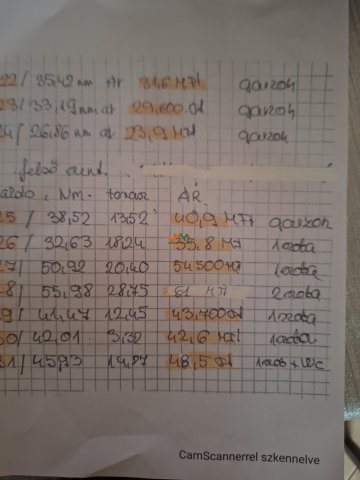 22/ 35,42 nm Ár 31,6 MFt garzon
23/ 33,19 nm ár 29,600.Ft garzon
24/ 26,86 nm ár 23,9 MFt garzon
felső szint.
Nm. terasz ÁR.
25/ 38,52 13,52 40,9 MFt garzon
26/ 32,63 18,24 35,8 MFt 1 szoba
27/ 50,92 20,40 54 500 Ft 1 szoba
8/ 55,98 28,75 61 MFt 2 szoba
9/ 41,47 12,45 43,700 Ft 1 szoba
30/ 42,01 3,32 42,6 MFt 1 szoba
31/ 45,93 14,87 48,5 Ft 1 szob + WC
CamScannerrel szkennelve